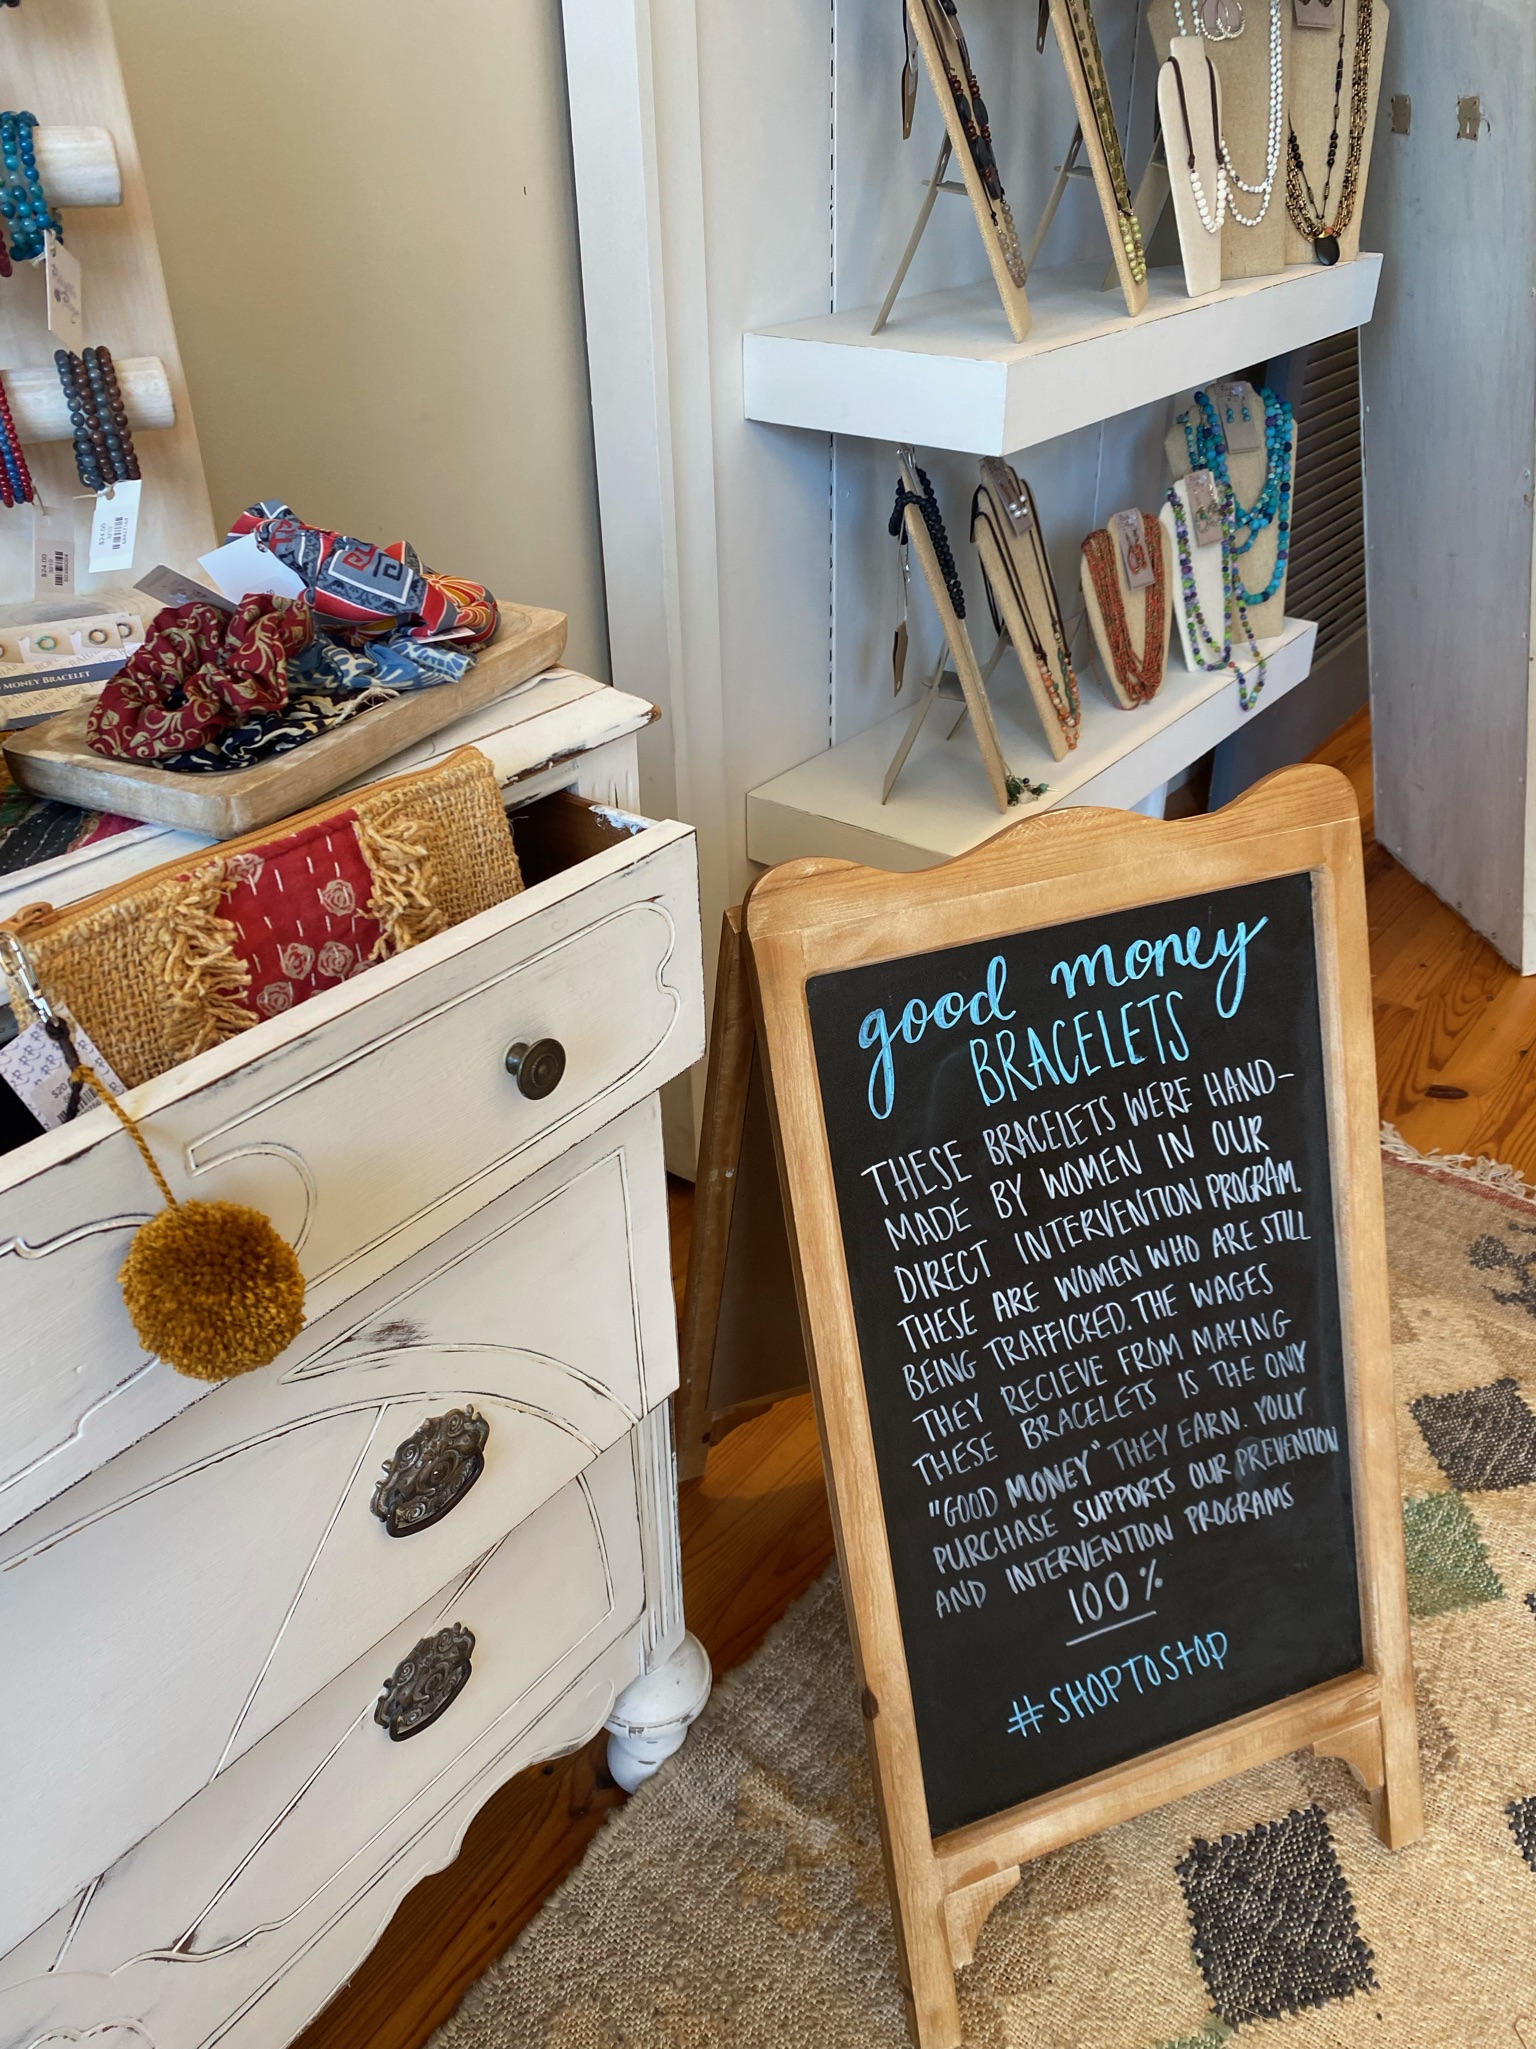 $24.00
$24.00
MONEY BRACELET
$20
good money
BRACELETS
THESE BRACELETS WERE HAND-
MADE BY WOMEN IN OUR
DIRECT INTERVENTION PROGRAM.
THESE ARE WOMEN WHO ARE STILL
BEING TRAFFICKED. THE WAGES
THEY RECIEVE FROM MAKING
THESE BRACELETS IS THE ONLY
"GOOD MONEY" THEY EARN. YOUR
PURCHASE SUPPORTS OUR PREVENTION
AND INTERVENTION PROGRAMS
100%
#SHOPTOSTOP